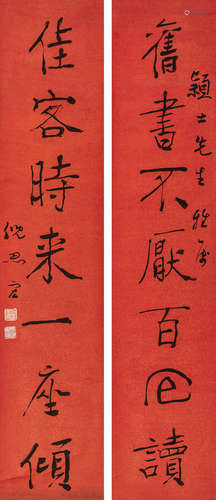 舊書不厭百回讀
穎士先生雅屬
佳客時来一座傾
倪思宏